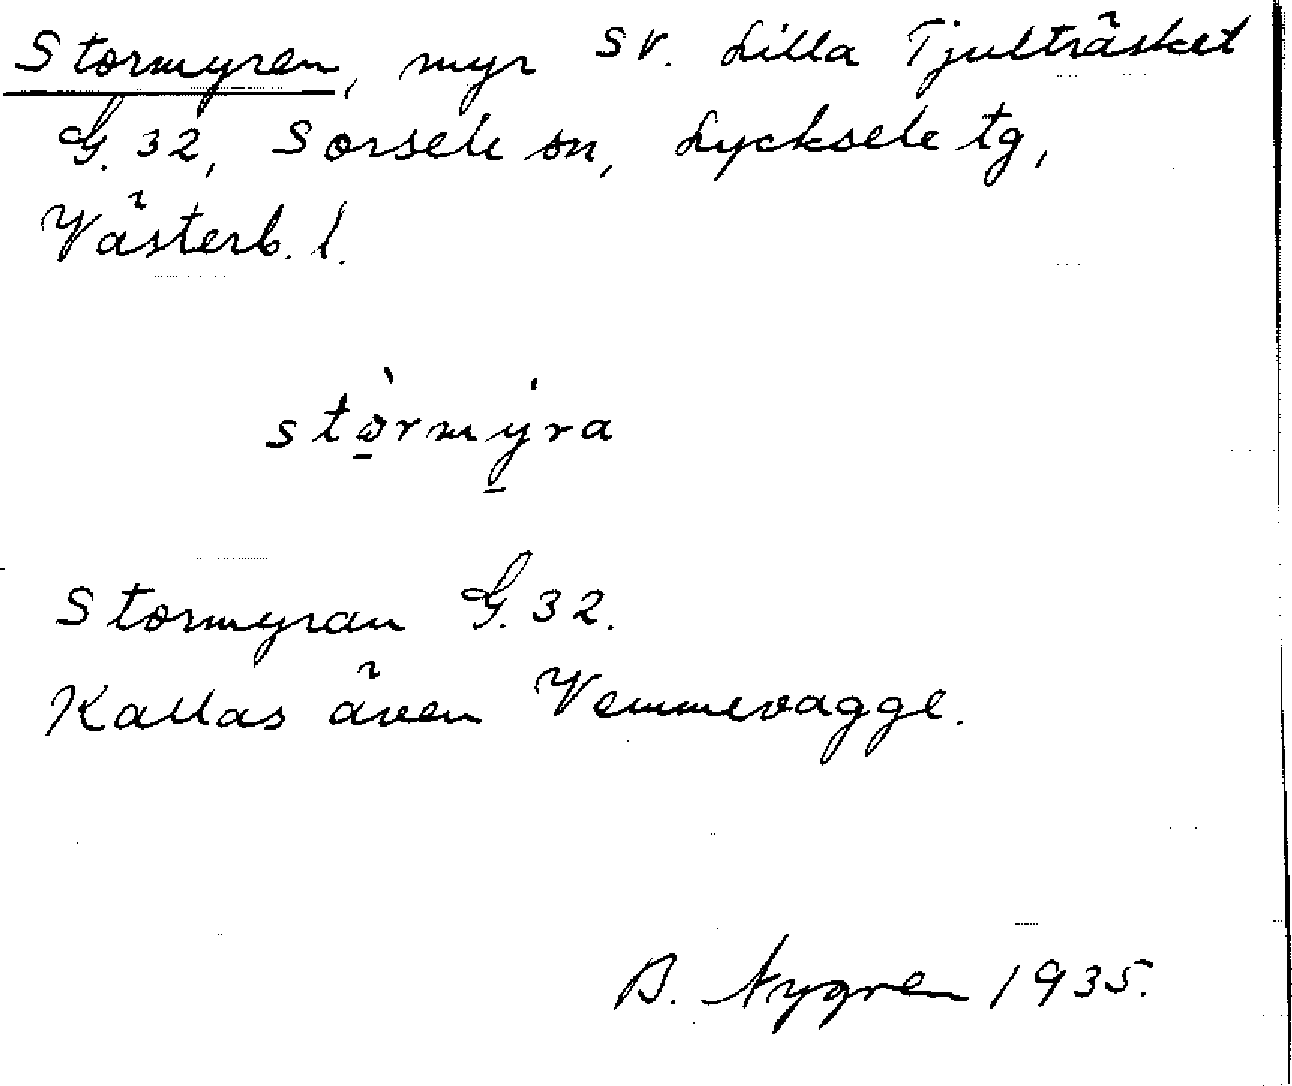 Stormyren, myr SV. Lilla Tjulträsket
G. 32, Sorsele sn, Lycksele tg,
Västerb. l.
stò̱rmý̱ra
Stormyran G. 32.
Kallas även Vemmevagge.
B. Nygren 1935.